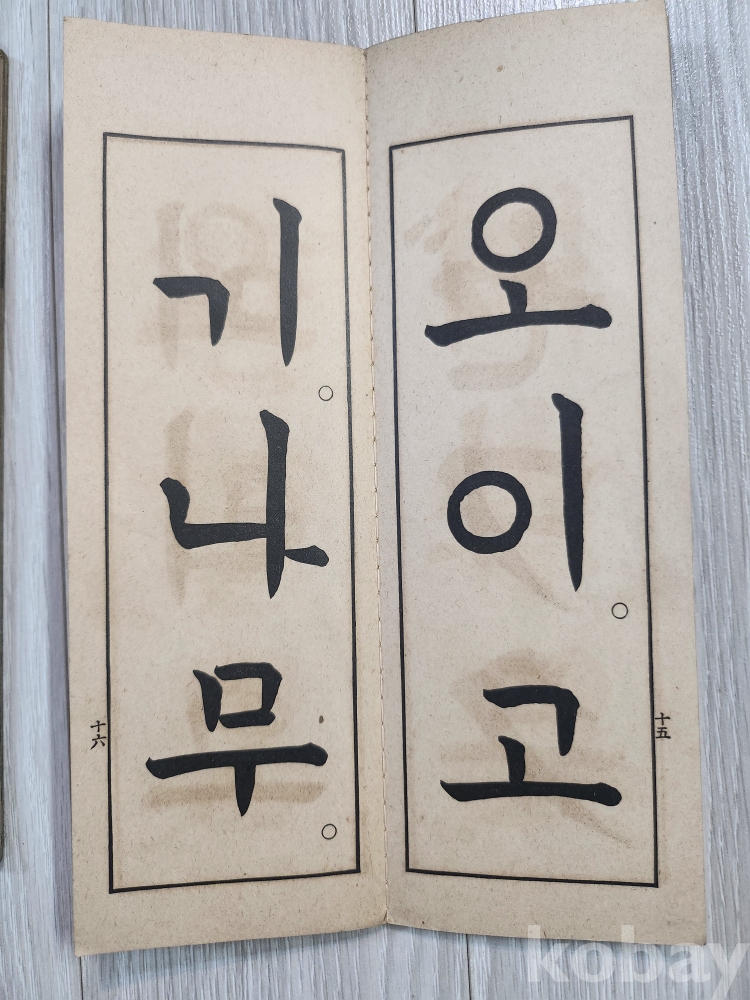 오이○고
十五
기○나무○
十六
kobay